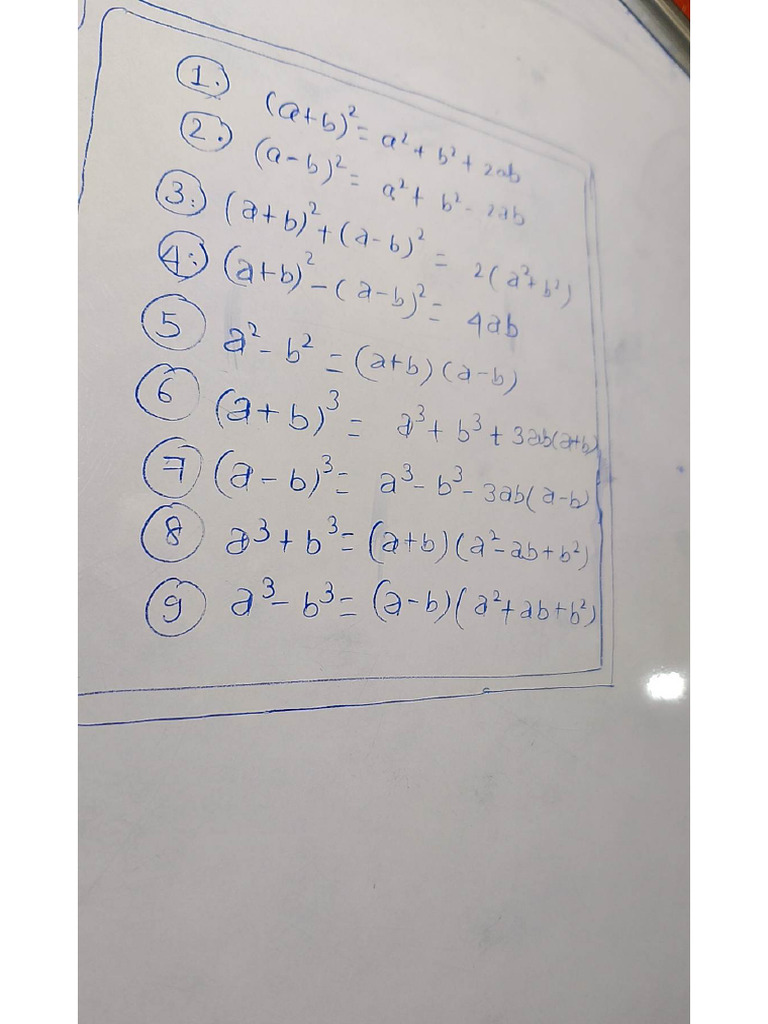 1. (a+b)² = a² + b² + 2ab
2. (a-b)² = a² + b² - 2ab
3. (a+b)² + (a-b)² = 2(a²+b²)
4. (a+b)² - (a-b)² = 4ab
5 a² - b² = (a+b) (a-b)
6 (a+b)³ = a³ + b³ + 3ab(a+b)
7 (a-b)³ = a³ - b³ - 3ab(a-b)
8 a³ + b³ = (a+b) (a² - ab + b²)
9 a³ - b³ = (a-b) (a² + ab + b²)